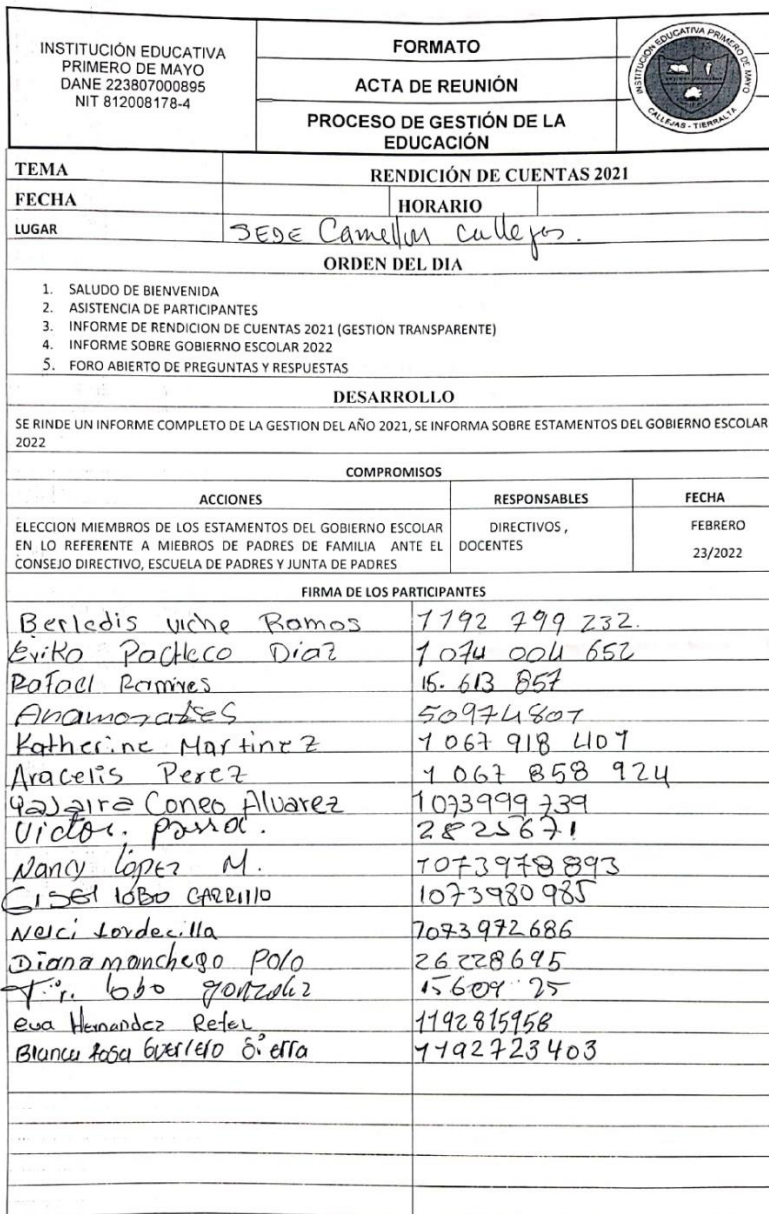 INSTITUCIÓN EDUCATIVA
PRIMERO DE MAYO
DANE 223807000895
NIT 812008178-4
FORMATO
ACTA DE REUNIÓN
PROCESO DE GESTIÓN DE LA
EDUCACIÓN
INSTITUCIÓN EDUCATIVA PRIMERO DE MAYO
CALLEJAS - TIERRALTA
TEMA RENDICIÓN DE CUENTAS 2021
FECHA HORARIO
LUGAR SEDE Camellon Callejas.
ORDEN DEL DIA
1. SALUDO DE BIENVENIDA
2. ASISTENCIA DE PARTICIPANTES
3. INFORME DE RENDICION DE CUENTAS 2021 (GESTION TRANSPARENTE)
4. INFORME SOBRE GOBIERNO ESCOLAR 2022
5. FORO ABIERTO DE PREGUNTAS Y RESPUESTAS
DESARROLLO
SE RINDE UN INFORME COMPLETO DE LA GESTION DEL AÑO 2021, SE INFORMA SOBRE ESTAMENTOS DEL GOBIERNO ESCOLAR
2022
COMPROMISOS
ACCIONES RESPONSABLES FECHA
ELECCION MIEMBROS DE LOS ESTAMENTOS DEL GOBIERNO ESCOLAR
EN LO REFERENTE A MIEBROS DE PADRES DE FAMILIA ANTE EL
CONSEJO DIRECTIVO, ESCUELA DE PADRES Y JUNTA DE PADRES
DIRECTIVOS ,
DOCENTES
FEBRERO
23/2022
FIRMA DE LOS PARTICIPANTES
Berledis Ramos 1192 799 232.
Pacheco Diaz 1 074 004 652
Rafael Ramires 15. 613 857
50974807
Katherine Martinez 1 067 918 407
Aracelis Perez 1 067 858 924
Yajaira Coneo Alvarez 1073999739
Victor. 2825671
Nancy López M. 1073978893
Gisel lobo CARRIllO 1073980985
Nelci tordecilla 1073972686
Diana manchego Polo 26228695
lobo gonzalez 15609 25
eva Hernandez 1192815958
Blanca Rosa Guerrero Sierra 1192723403